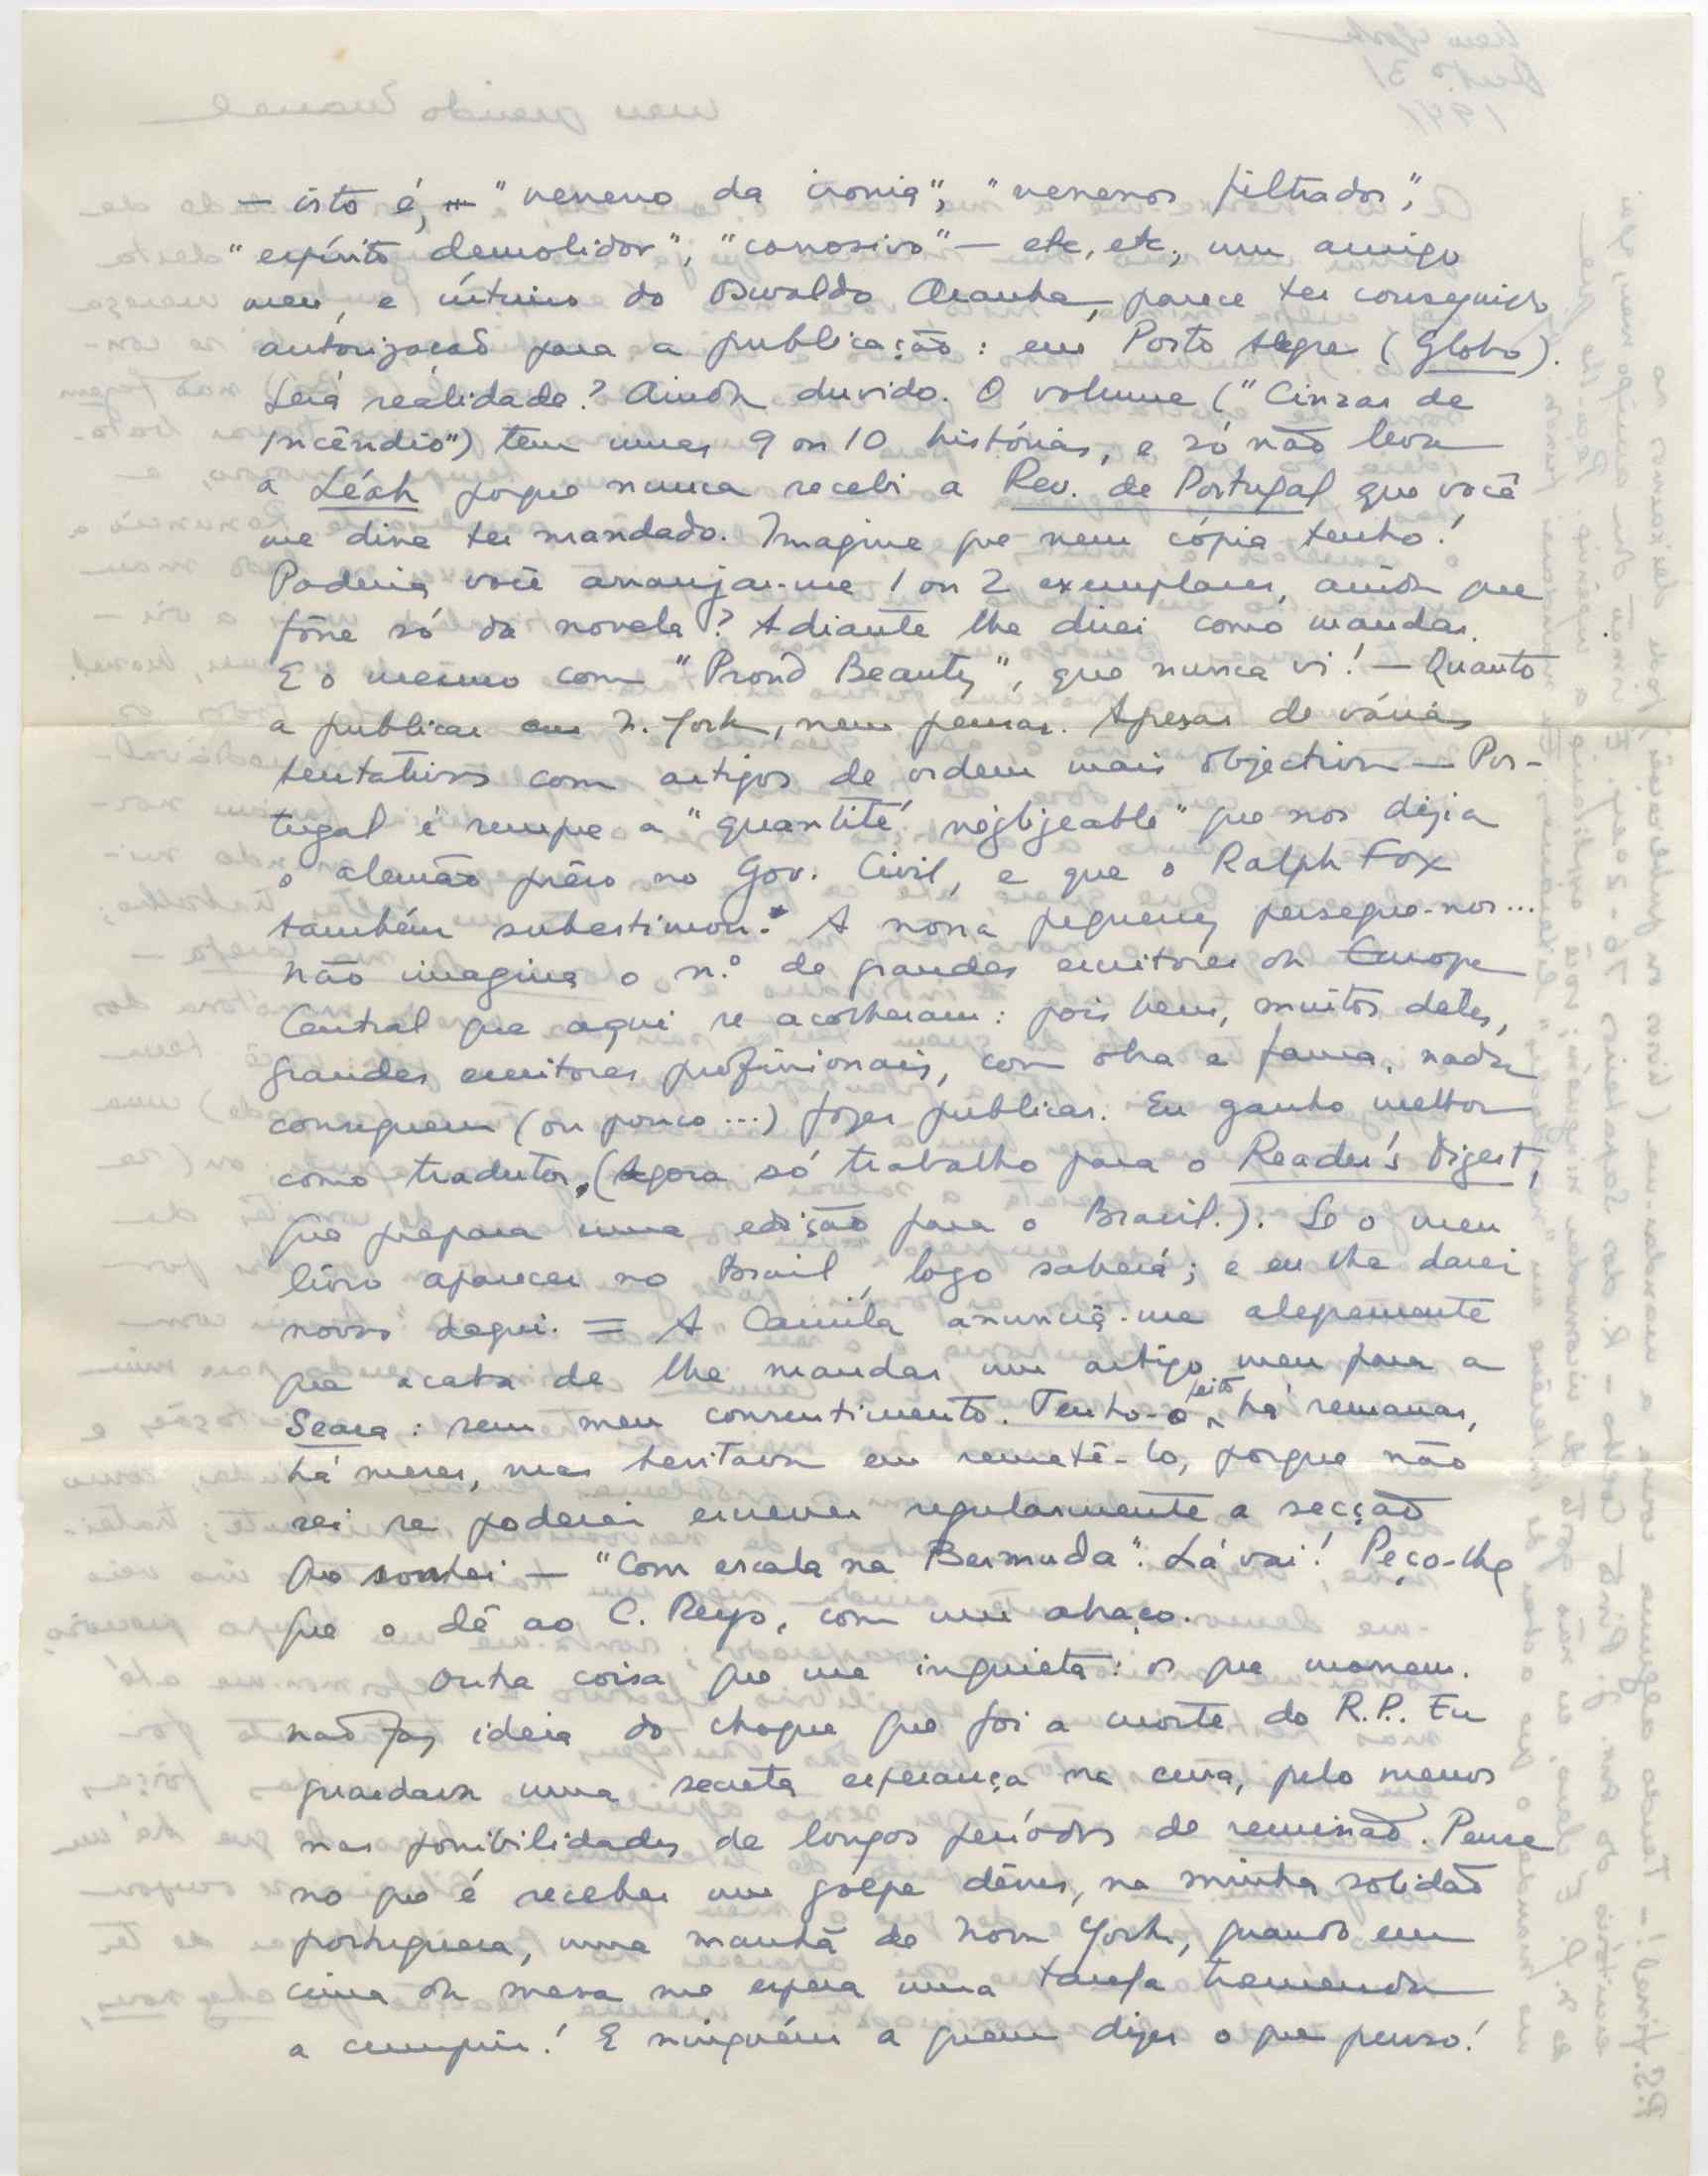 — isto é, — "veneno da ironia", "venenos filtrados",
"espírito demolidor", "corrosivo" — etc, etc., um amigo
meu, e íntimo do Oswaldo Aranha, parece ter conseguido
autorização para a publicação: em Porto Alegre (Globo).
Será realidade? Ainda duvido. O volume ("Cinzas de
Incêndio") tem umas 9 ou 10 histórias, e só não leva
a Léah porque nunca recebi a Rev. de Portugal que você
me disse ter mandado. Imagine que nem cópia tenho!
Poderia você arranjar-me 1 ou 2 exemplares, ainda que
fôsse só da novela? Adiante lhe direi como mandar.
E o mesmo com "Proud Beauty", que nunca vi! — Quanto
a publicar em N. York, nem pensar. Apesar de várias
tentativas com artigos de ordem mais objectiva — Por-
tugal é sempre a "quantité négligeable" que nos dizia
o alemão prêso no Gov. Civil, e que o Ralph Fox
também subestimou. A nossa pequenez persegue-nos...
não imagina o n.º de grandes escritores da Europa
Central que aqui se acolheram: pois bem, muitos deles,
grandes escritores profissionais, com obra e fama, nada
conseguem (ou pouco...) fazer publicar. Eu ganho melhor
como tradutor. (Agora só trabalho para o Reader's Digest,
que prepara uma edição para o Brasil.). Se o meu
livro aparecer no Brasil, logo saberá; e eu lhe darei
novas daqui. = A Camila anuncia-me alegremente
que acaba de lhe mandar um artigo meu para a
Seara: sem meu consentimento. Tenho-o feito há semanas,
há meses, mas hesitava em remetê-lo, porque não
sei se poderei escrever regularmente a secção
que sonhei — "Com escala na Bermuda". Lá vai! Peço-lhe
que o dê ao C. Reys, com um abraço.
Outra coisa que me inquieta: os que morrem.
não faz ideia do choque que foi a morte do R.P.. Eu
guardava uma secreta esperança na cura, pelo menos
nas possibilidades de longos períodos de remissão. Pense
no que é receber um golpe dêsses, na minha solidão
portuguesa, uma manhã de Nova York, quando em
cima da mesa me espera uma tarefa tremenda
a cumprir! E ninguém a quem dizer o que penso!